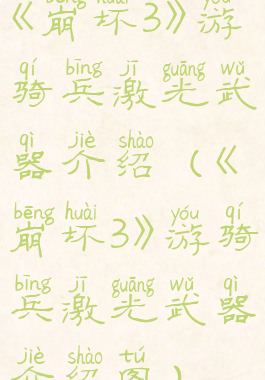 bēng huài yóu
《崩坏3》游
qí bīng jī guāng wǔ
骑兵激光武
qì jiè shào
器介绍（《
bēng huài yóu qí
崩坏3》游骑
bīng jī guāng wǔ qì
兵激光武器
jiè shào tú
介绍图）